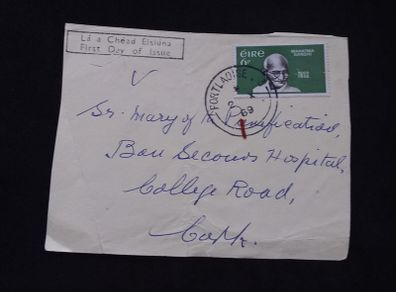 Lá a Chéad Eisiúna
First Day of Issue
éire
MAHATMA
GANDHI
PORTLAOISE
2 X
69
V
Sr. Mary of the Purification,
Bon Secours Hospital,
College Road,
Cork.